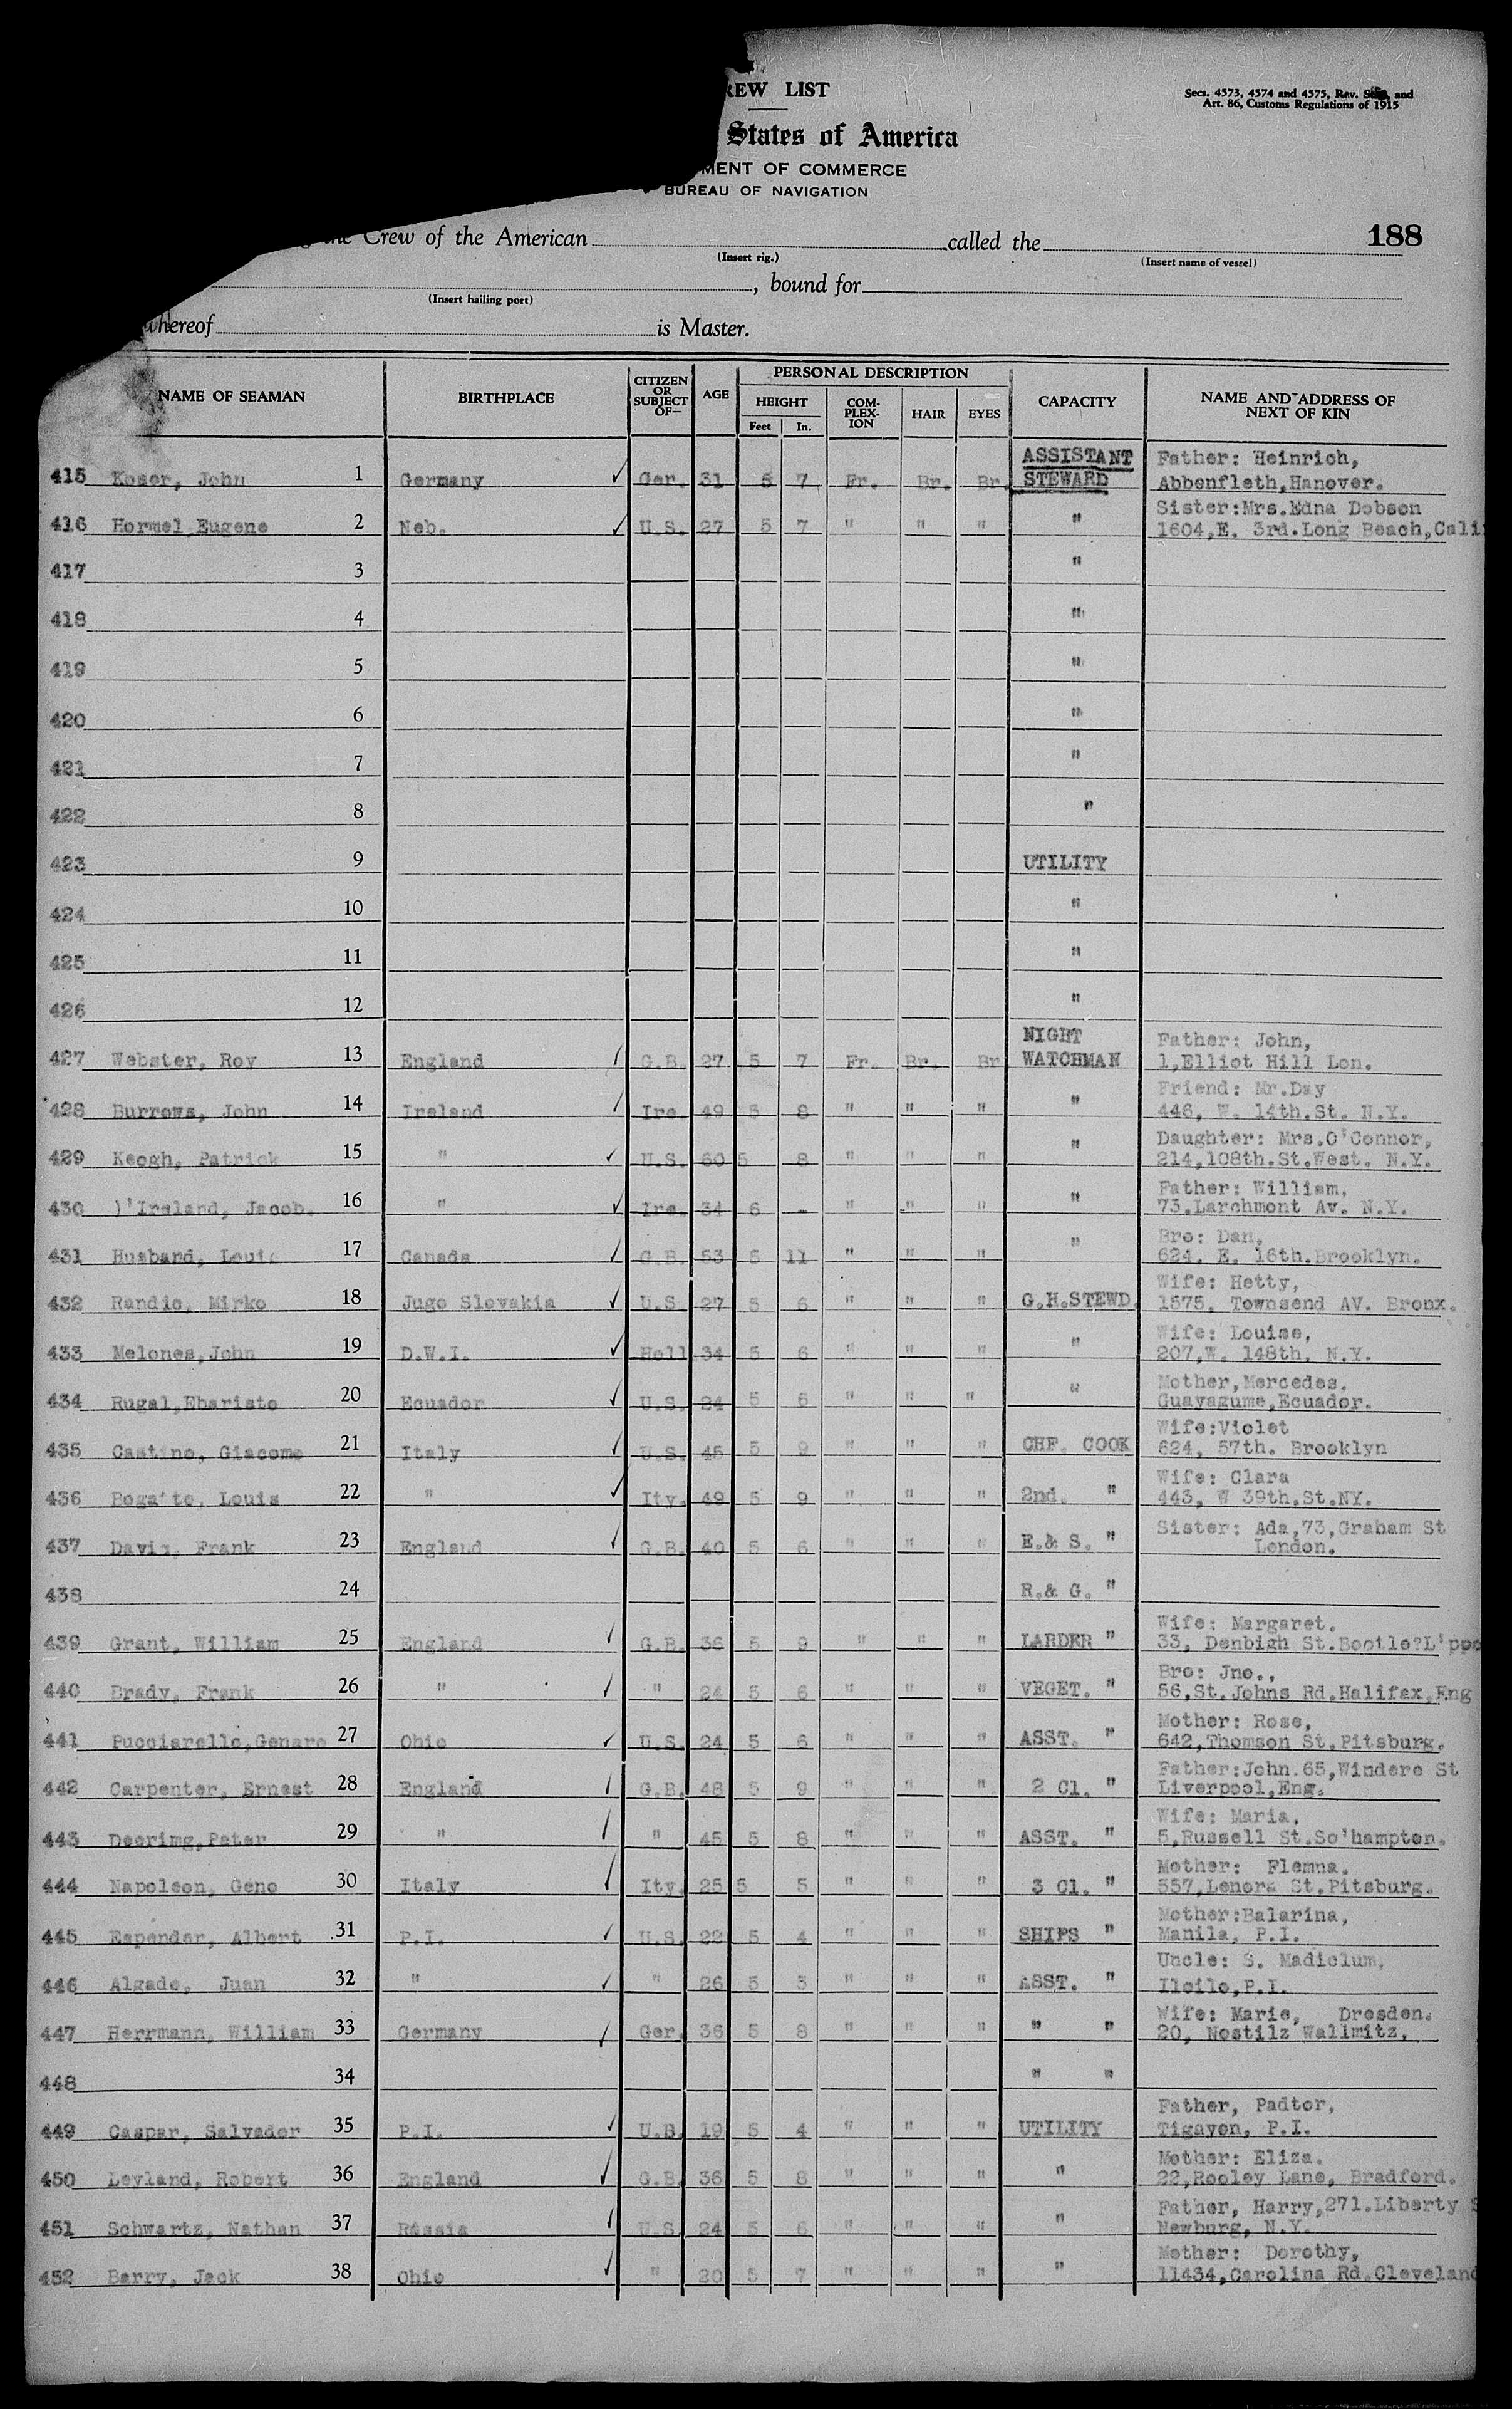 REW LIST
Secs. 4573, 4574 and 4575, Rev. and
Art. 86, Customs Regulations of 1915
States of America
MENT OF COMMERCE
BUREAU OF NAVIGATION
the Crew of the American called the 188
(Insert rig.) (Insert name of vessel)
, bound for
(Insert hailing port)
whereof is Master.
NAME OF SEAMAN BIRTHPLACE CITIZEN OR SUBJECT OF— AGE PERSONAL DESCRIPTION CAPACITY NAME AND ADDRESS OF NEXT OF KIN
HEIGHT COM-PLEX-ION HAIR EYES
Feet In.
ASSISTANT Father: Heinrich,
415 Koser, John 1 Germany ✓ Ger. 31 5 7 Fr. Br. Br. STEWARD Abbenfleth,Hanover.
Sister:Mrs.Edna Dobson
416 Hormel,Eugene 2 Neb. ✓ U.S. 27 5 7 " " " " 1604,E. 3rd.Long Beach,Cali
417 3 "
418 4 "
419 5 "
420 6 "
421 7 "
422 8 "
423 9 UTILITY
424 10 "
425 11 "
426 12 "
NIGHT Father: John,
427 Webster, Roy 13 England ✓ G.B. 27 5 7 Fr. Br. Br WATCHMAN 1,Elliot Hill Lon.
Friend: Mr.Day
428 Burrows, John 14 Ireland ✓ Ire. 49 5 8 " " " " 446, W. 14th.St. N.Y.
Daughter: Mrs.O'Connor,
429 Keogh, Patrick 15 " ✓ U.S. 60 5 8 " " " " 214,108th.St.West. N.Y.
Father: William,
430 )'Ireland, Jacob. 16 " ✓ Ire. 34 6 - " " " " 73.Larchmont Av. N.Y.
Bro: Dan,
431 Husband, Louis 17 Canada ✓ G.B. 53 5 11 " " " " 624. E. 16th.Brooklyn.
Wife: Hetty,
432 Randic, Mirko 18 Jugo Slovakia ✓ U.S. 27 5 6 " " " G.H.STEWD. 1575, Townsend AV. Bronx.
Wife: Louise,
433 Melones,John 19 D.W.I. ✓ Holl 34 5 6 " " " " 207,W. 148th. N.Y.
Mother,Mercedes.
434 Rugal,Ebaristo 20 Ecuador ✓ U.S. 24 5 6 " " " " Guayagume,Ecuador.
Wife:Violet
435 Castino, Giacomo 21 Italy ✓ U.S. 45 5 9 " " " CHF. COOK 624, 57th. Brooklyn
Wife: Clara
436 Louis 22 " ✓ Ity. 49 5 9 " " " 2nd. " 443, W 39th.St.NY.
Sister: Ada,73,Graham St
437 Davis, Frank 23 England ✓ G.B. 40 5 6 " " " E.& S. " London.
438 24 R.& G. "
Wife: Margaret.
439 Grant, William 25 England ✓ G.B. 36 5 9 " " " LARDER " 33, Denbigh St.Bootle?L'poo
Bro: Jno.,
440 Brady, Frank 26 " ✓ " 24 5 6 " " " VEGET. " 56,St.Johns Rd.Halifax.Eng
Mother: Rose,
441 Pucciarello,Genaro 27 Ohio ✓ U.S. 24 5 6 " " " ASST. " 642,Thomson St.Pitsburg.
Father:John.65,Windero St
442 Carpenter, Ernest 28 England ✓ G.B. 48 5 9 " " " 2 Cl. " Liverpool,Eng.
Wife: Maria.
443 Deerimg,Peter 29 " ✓ " 45 5 8 " " " ASST. " 5,Russell St.So'hampton.
Mother: Flemna.
444 Napoleon, Geno 30 Italy ✓ Ity. 25 5 5 " " " 3 Cl. " 557,Lenora St.Pitsburg.
Mother:Balarina,
445 Espender, Albert 31 P.I. ✓ U.S. 22 5 4 " " " SHIPS " Manila, P.I.
Uncle: S. Madiclum,
446 Algado, Juan 32 " ✓ " 26 5 3 " " " ASST. " Iloilo,P.I.
Wife: Marie, Dresden.
447 Herrmann, William 33 Germany ✓ Ger. 36 5 8 " " " " " 20, Nostilz Wallmitz,
448 34 " "
Father, Padtor,
449 Caspar, Salvador 35 P.I. ✓ U.S. 19 5 4 " " " UTILITY Tigayon, P.I.
Mother: Eliza.
450 Leyland, Robert 36 England ✓ G.B. 36 5 8 " " " " 22,Rooley Lane, Bradford.
Father, Harry,271.Liberty S
451 Schwartz, Nathan 37 Russia ✓ U.S. 24 5 6 " " " " Newburg, N.Y.
Mother: Dorothy,
452 Barry, Jack 38 Ohio ✓ " 20 5 7 " " " " 11434,Carolina Rd.Cleveland